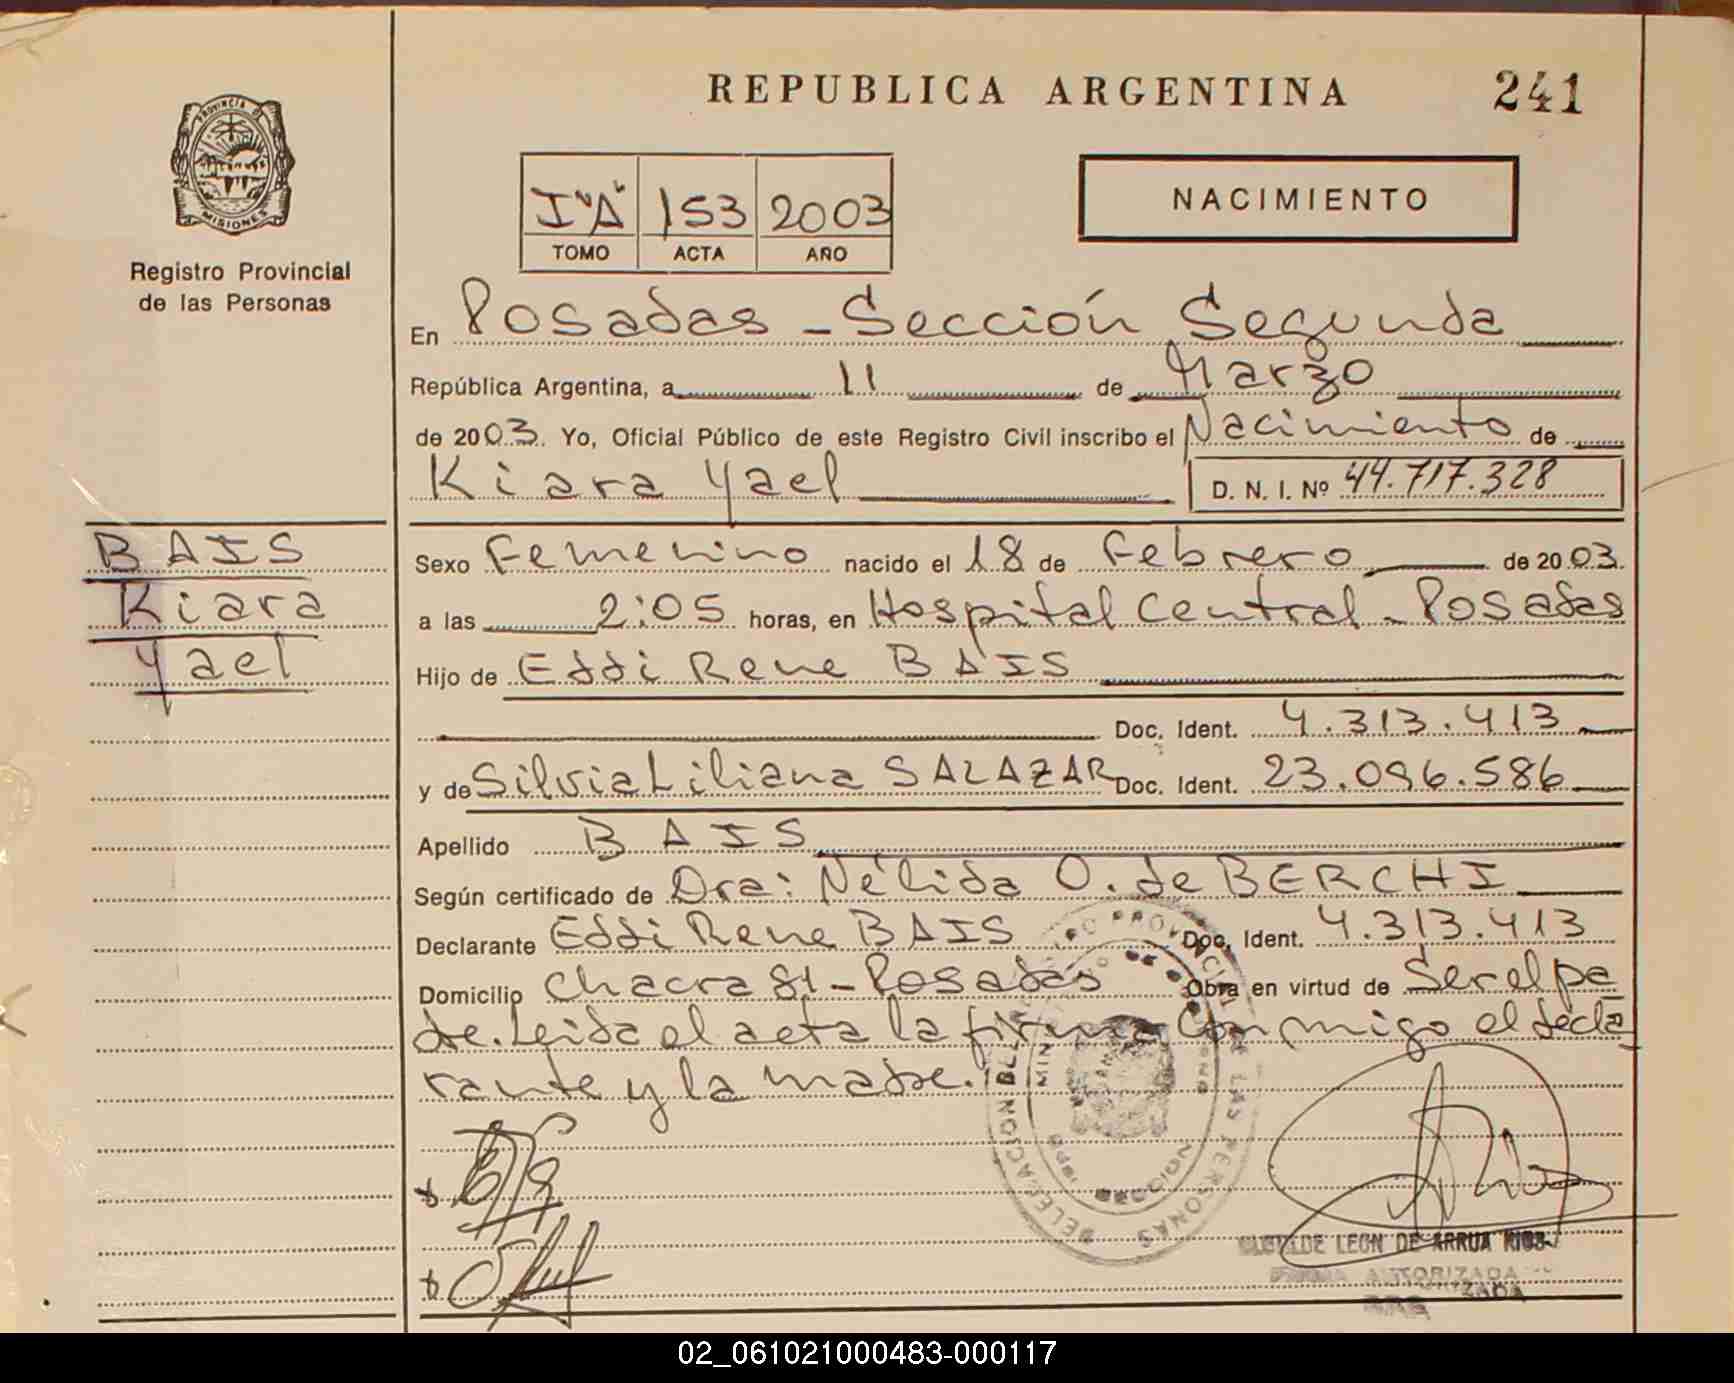 REPUBLICA ARGENTINA
241
PROVINCIA DE
MISIONES
Registro Provincial
de las Personas
I"A" 153 2003
TOMO ACTA AÑO
NACIMIENTO
En Posadas - Sección Segunda
República Argentina, a 11 de Marzo
de 2003. Yo, Oficial Público de este Registro Civil inscribo el Nacimiento de
Kiara Yael
D. N. I. Nº 44.717.328
BAIS
Kiara
Yael
Sexo Femenino nacido el 18 de Febrero de 2003.
a las 2:05 horas, en Hospital Central - Posadas
Hijo de Eddi Rene BAIS
Doc. Ident. 4.313.413
y de Silvia Liliana SALAZAR Doc. Ident. 23.096.586
Apellido BAIS
Según certificado de Dra: Nélida O. de BERCHI
Declarante Eddi Rene BAIS Doc. Ident. 4.313.413
Domicilio Chacra 81 - Posadas Obra en virtud de Ser el pa
dre. Leida el acta la firma Conmigo el decla
rante y la madre.
DELEGACION REGISTRO PROVINCIAL DE LAS PERSONAS
LEON DE ARRUA RIOS
FIRMA AUTORIZADA
02_061021000483-000117